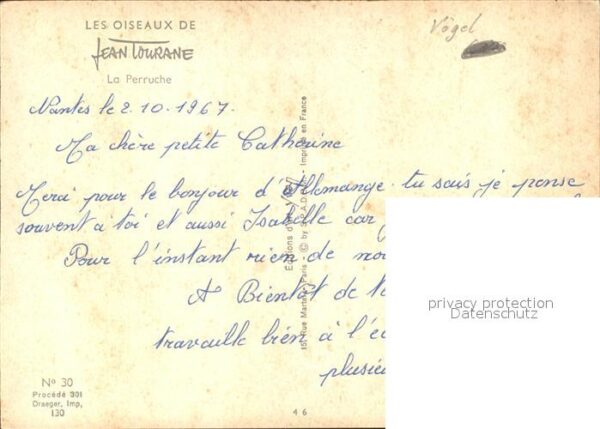 LES OISEAUX DE
JEAN TOURANE
La Perruche
Vögel
Nantes le 2.10.1967.
Ma chère petite Catherine
Merci pour le bonjour d'Allemange. tu sais je pense
souvent a toi et aussi Isabelle car
Pour l'instant rien de
A Bientôt de
travaille bien à l'é
plusieu
Nº 30
Procédé 301
Draeger, Imp,
130
46
Editions d'
15, Rue Martel, Paris - © by S.P.A.D.E.M. - Imprimé en France
privacy protection
Datenschutz